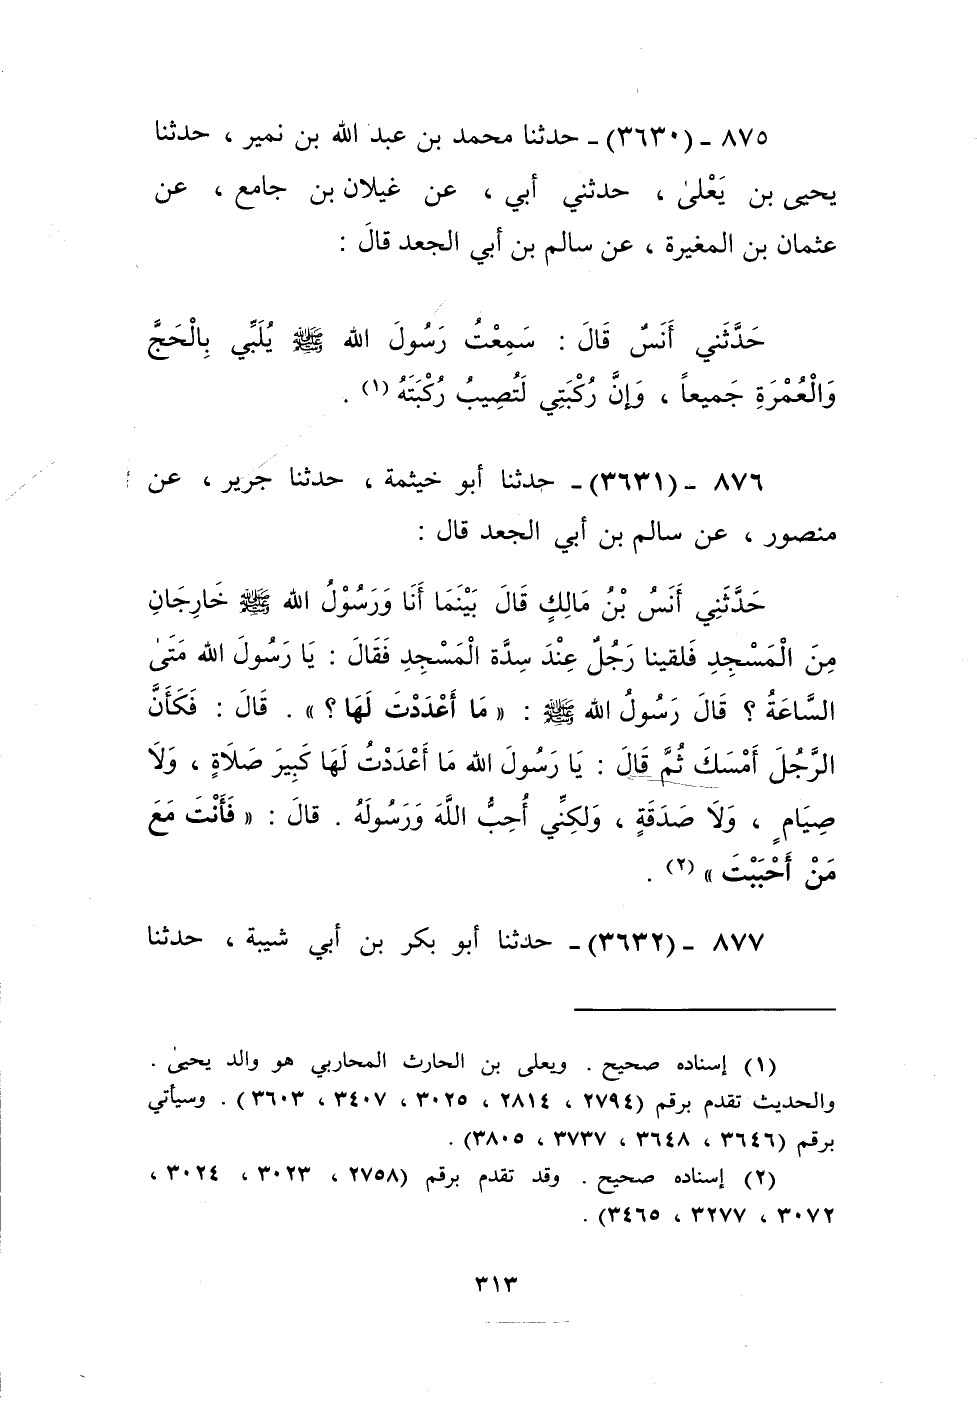 ٨٧٥ - (٣٦٣٠) - حدثنا محمد بن عبد الله بن نمير ، حدثنا
يحيى بن يَعْلىٰ ، حدثني أبي ، عن غيلان بن جامع ، عن
عثمان بن المغيرة ، عن سالم بن أبي الجعد قالَ :
حَدَّثَني أَنَسٌ قَالَ : سَمِعْتُ رَسُولَ الله ﷺ يُلَبِّي بِالْحَجَّ
وَالْعُمْرَةِ جَميعاً ، وَإنَّ رُكْبَتِي لَتُصِيبُ رُكْبَتَهُ (١) .
٨٧٦ - (٣٦٣١) - حدثنا أبو خيثمة ، حدثنا جرير ، عن
منصور ، عن سالم بن أبي الجعد قال :
حَدَّثَنِي أَنَسُ بْنُ مَالِكٍ قَالَ بَيْنَمَا أَنَا وَرَسُوْلُ الله ﷺ خَارِجَانِ
مِنَ الْمَسْجِدِ فَلقينا رَجُلٌ عِنْدَ سِدَّة الْمَسْجِدِ فَقَالَ : يَا رَسُولَ الله مَتَىٰ
السَّاعَةُ ؟ قَالَ رَسُولُ الله ﷺ : « مَا أَعْدَدْتَ لَهَا ؟ » . قَالَ : فَكَأَنَّ
الرَّجُلَ أَمْسَكَ ثُمَّ قَالَ : يَا رَسُولَ الله مَا أَعْدَدْتُ لَهَا كَبِيرَ صَلَاةٍ ، وَلَا
صِيَامٍ ، وَلَا صَدَقَةٍ ، وَلكِنِّي أُحِبُّ اللَّهَ وَرَسُولَهُ . قالَ : « فَأَنْتَ مَعَ
مَنْ أَحْبَبْتَ » (٢) .
٨٧٧ - (٣٦٣٢) - حدثنا أبو بكر بن أبي شيبة ، حدثنا
(١) إسناده صحيح . ويعلى بن الحارث المحاربي هو والد يحيىٰ .
والحديث تقدم برقم (٢٧٩٤ ، ٢٨١٤ ، ٣٠٢٥ ، ٣٤٠٧ ، ٣٦٠٣) . وسيأتي
برقم (٣٦٤٦ ، ٣٦٤٨ ، ٣٧٣٧ ، ٣٨٠٥) .
(٢) إسناده صحيح . وقد تقدم برقم (٢٧٥٨ ، ٣٠٢٣ ، ٣٠٢٤ ،
٣٠٧٢ ، ٣٢٧٧ ، ٣٤٦٥) .
٣١٣